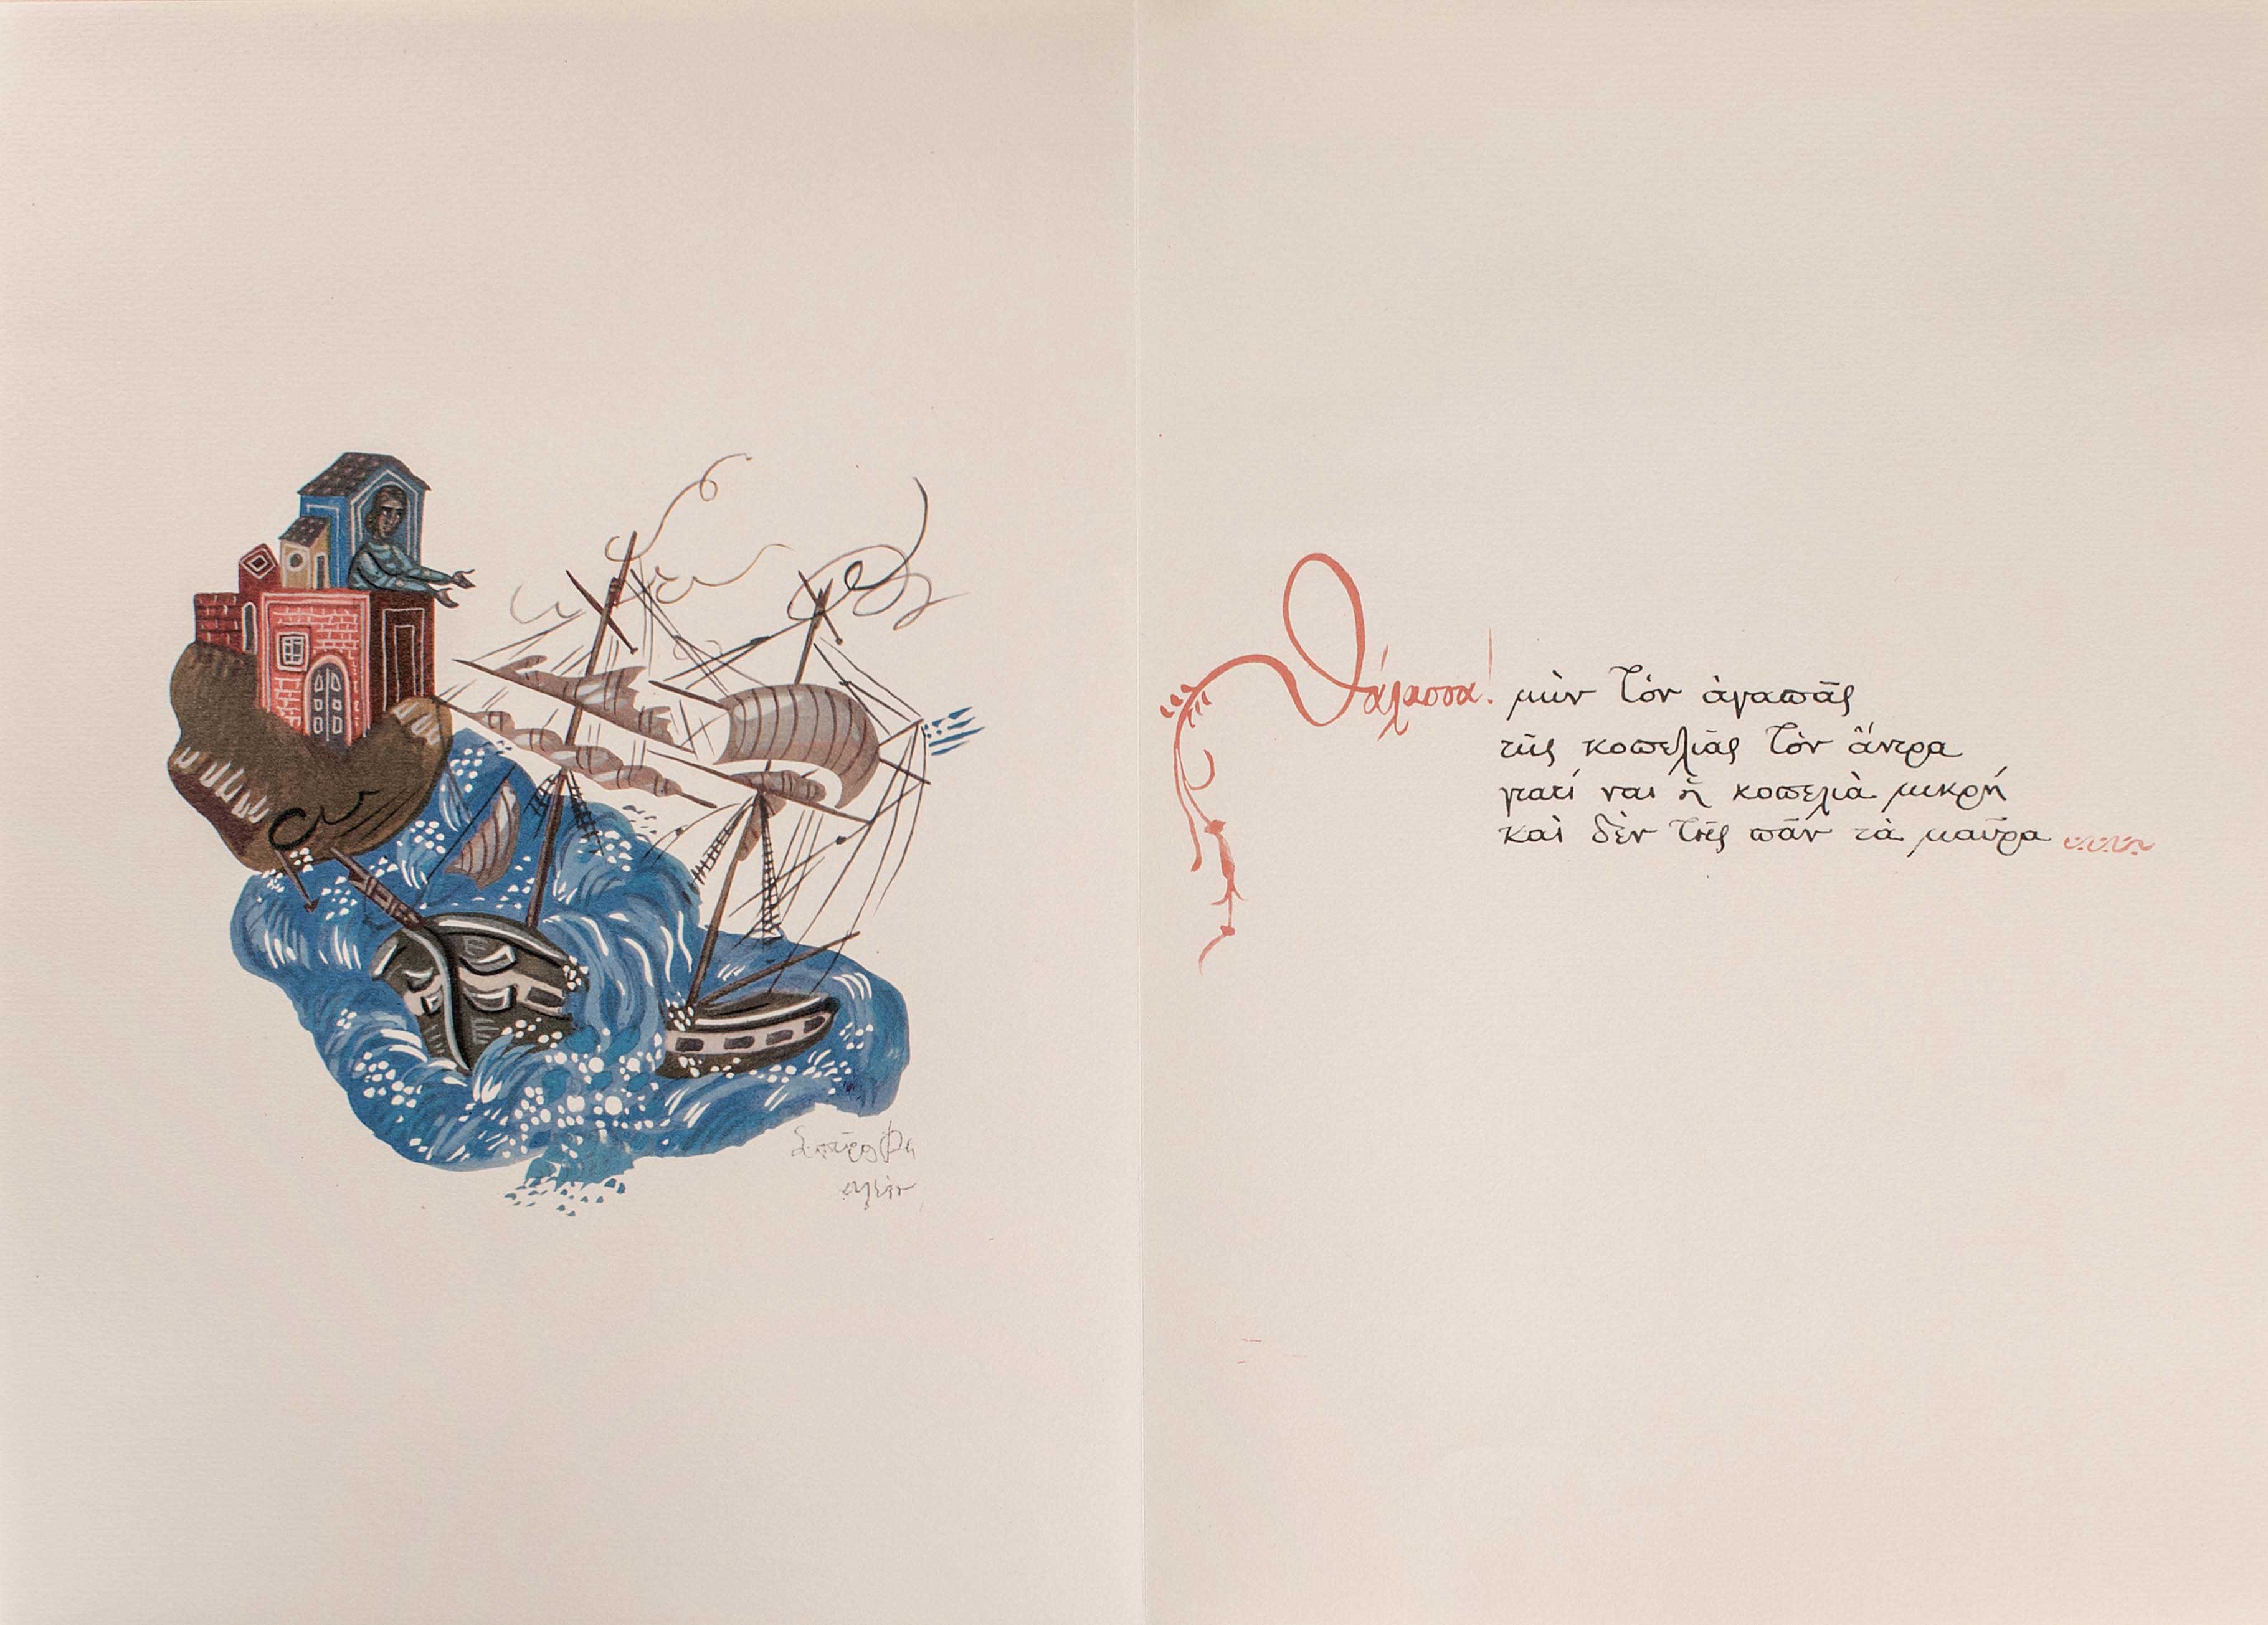 Θάλασσα! μὴν τὸν ἀγαπᾶς
τῆς κοπελιᾶς τὸν ἄντρα
γιατί ναι ἡ κοπελιὰ μικρή
καὶ δὲν τῆς πᾶν τὰ μαῦρα